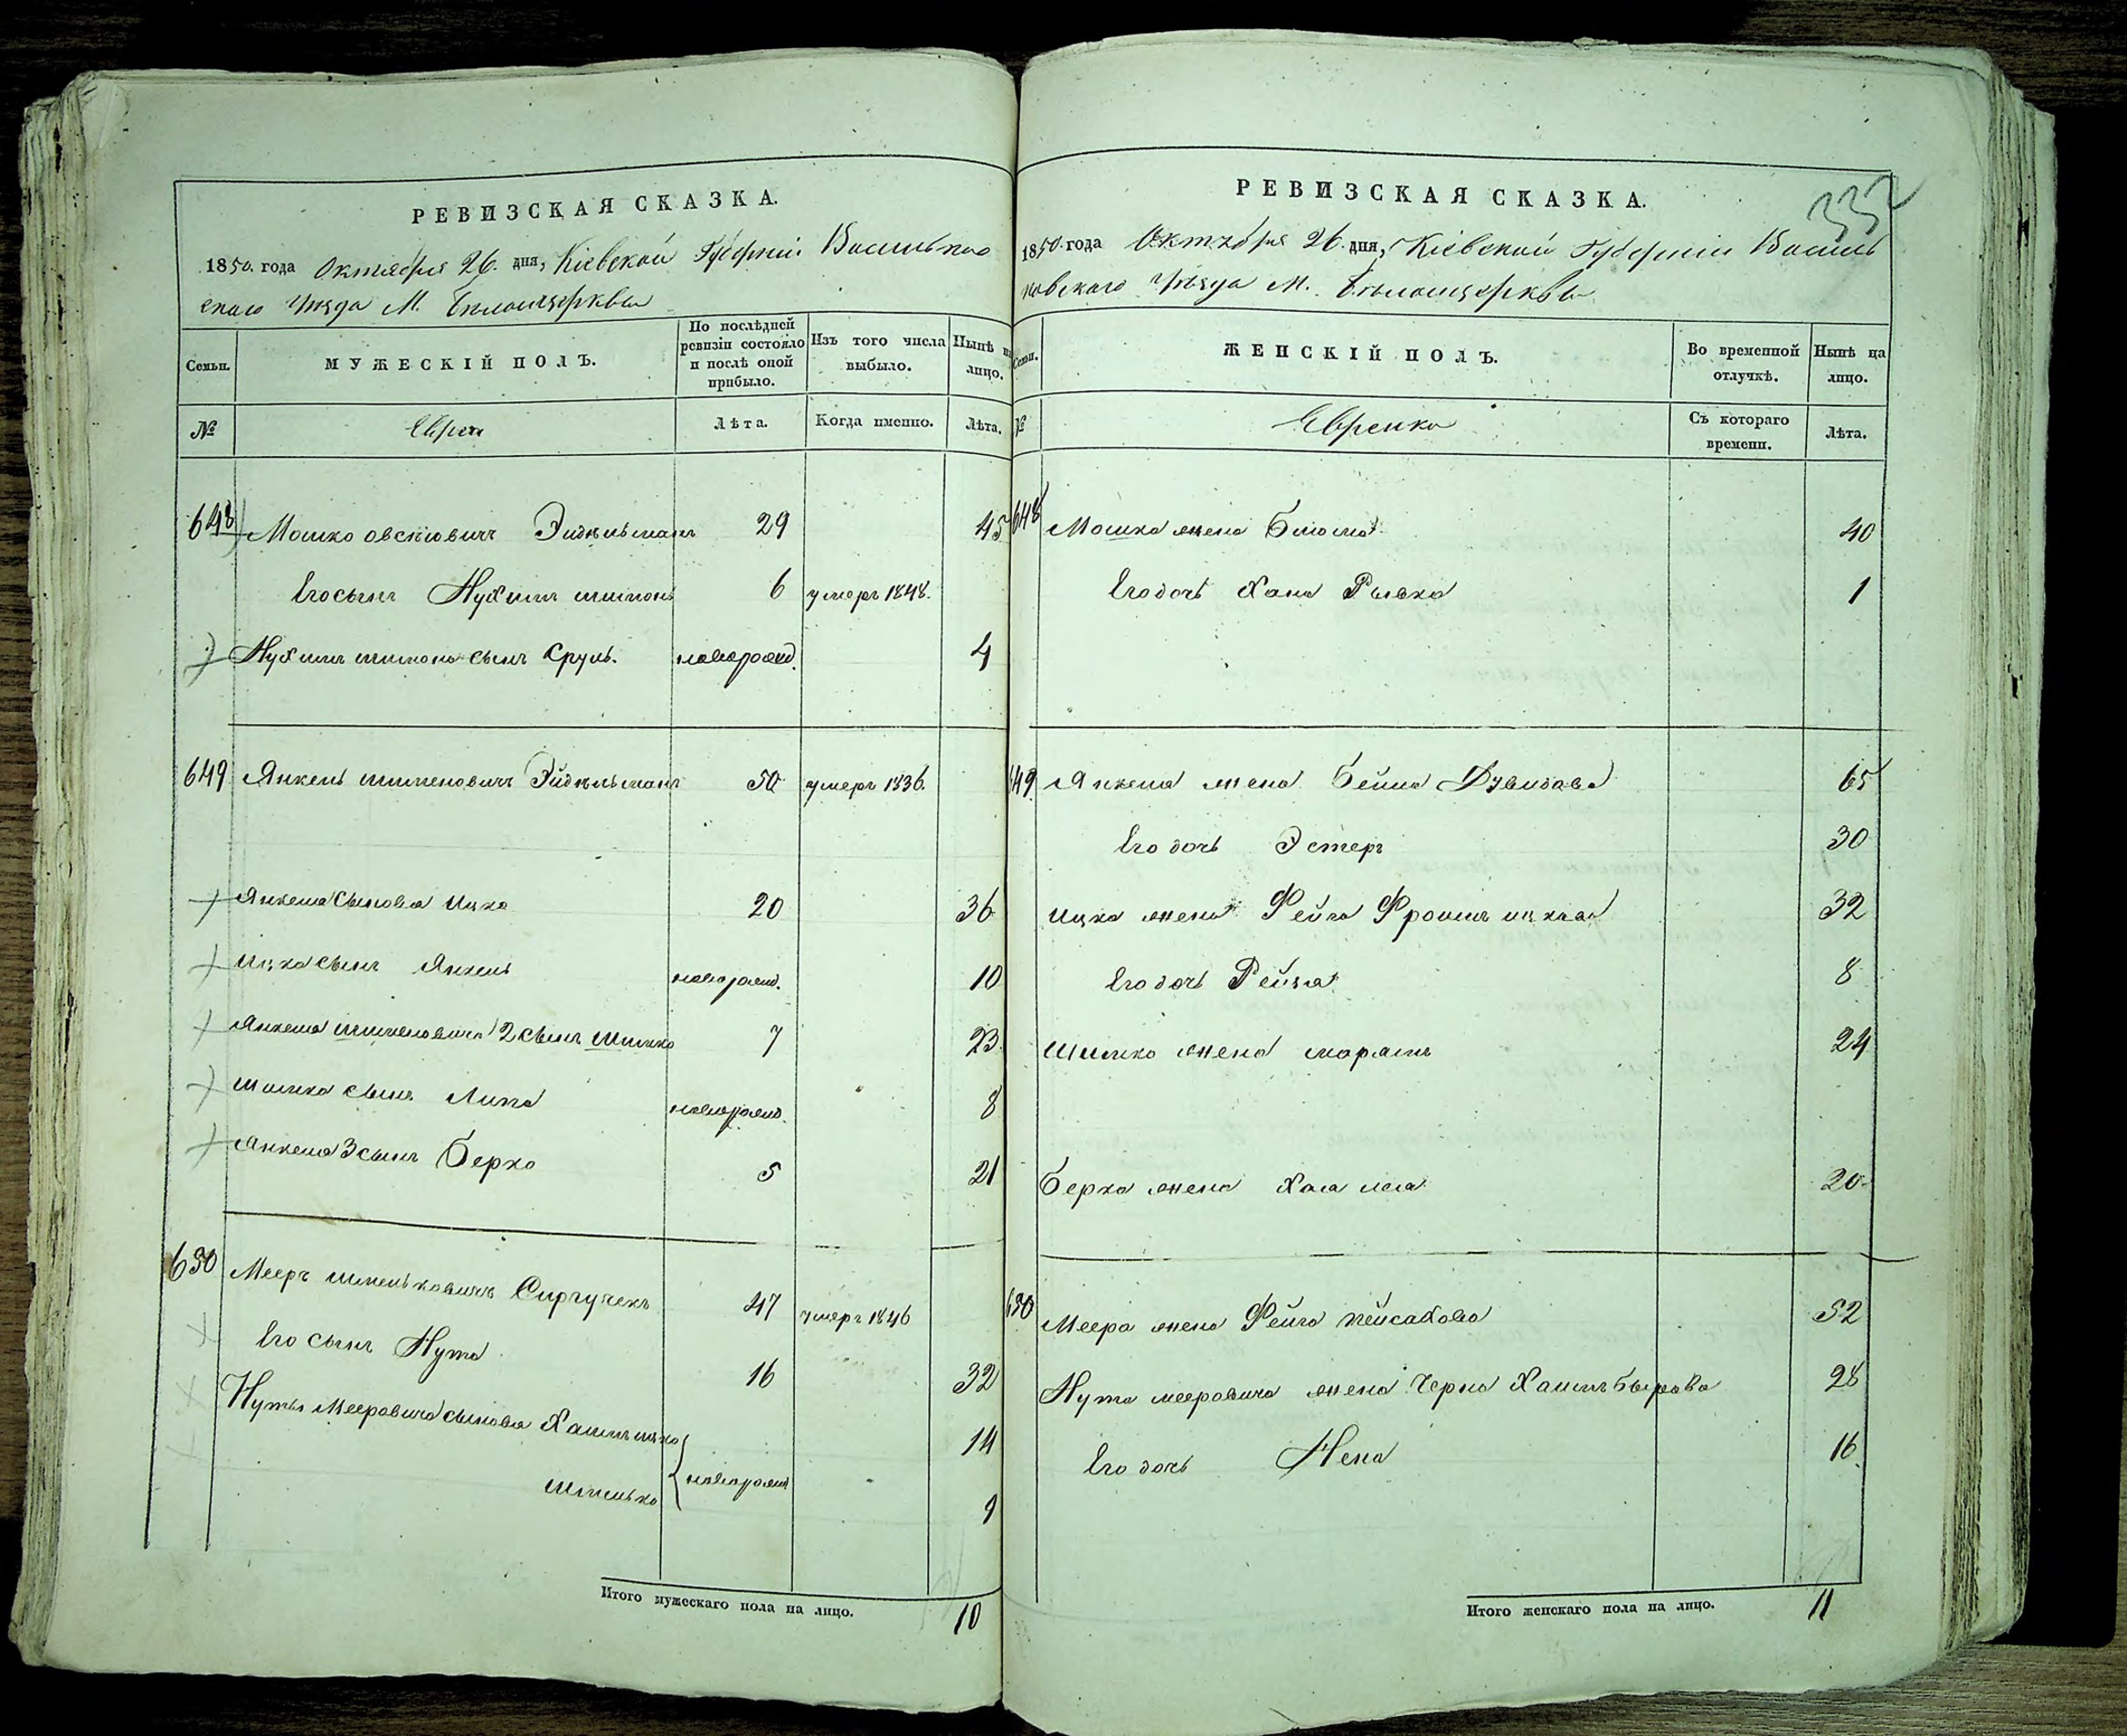 РЕВИЗСКАЯ СКАЗКА.
1850. года Октября 26. дня, Кіевской Губерніи Васильков
скаго Уѣзда М. Бѣлоцеркви
Семьи.
МУЖЕСКІЙ ПОЛЪ.
По послѣдней ревизіи состояло и послѣ оной прибыло.
Изъ того числа выбыло.
Нынѣ на лицо.
№
Евреи
Лѣта.
Когда именно.
Лѣта.
648 Мошко Овсіовичъ Эидельманъ 29 45
Его сынъ Нухимъ шимонъ 6 умеръ 1848.
Нухимъ шимона сынъ Сруль. новорожд. 4
649 Янкель шименовичъ Эйдельманъ 50 умеръ 1836.
Янкеля Сыновья Ицко 20 36
Ицка сынъ Янкель новорожд. 10
Янкеля шименовича 2 сынъ Шимко 7 23.
Шимка сынъ Липа новорожд. 8
Янкеля 3 сынъ Берко 5 21
650 Мееръ шмельковичъ Сиргучекъ 47 умеръ 1846
Его сынъ Нута 16 32
Нуты Мееровича сыновья Хаимъ ицко 14
новорожд
Шмелько 9
Итого мужескаго пола на лицо. 10
332
РЕВИЗСКАЯ СКАЗКА.
1850. года Октября 26. дня, Кіевской Губерніи Василь
ковскаго Уѣзда М. Бѣлоцеркви
Семьи.
ЖЕНСКІЙ ПОЛЪ.
Во временной отлучкѣ.
Нынѣ на лицо.
№
Еврейки
Съ котораго времени.
Лѣта.
648 Мошка жена Блюма 40
Его дочь Хана Рывка 1
649 Янкеля жена Бейла Дувидова 65
Его дочь Эстеръ 30
Ицка жена Фейга Фроимъ ицкова 32
Его дочь Рейза 8
Шимко жена мариамъ 24
Берка жена Хая лея 20
650 Меера жена Фейга пейсахова 52
Нута мееровича жена Черна Хаимъ 28
Его дочь Нена 16.
Итого женскаго пола на лицо. 11